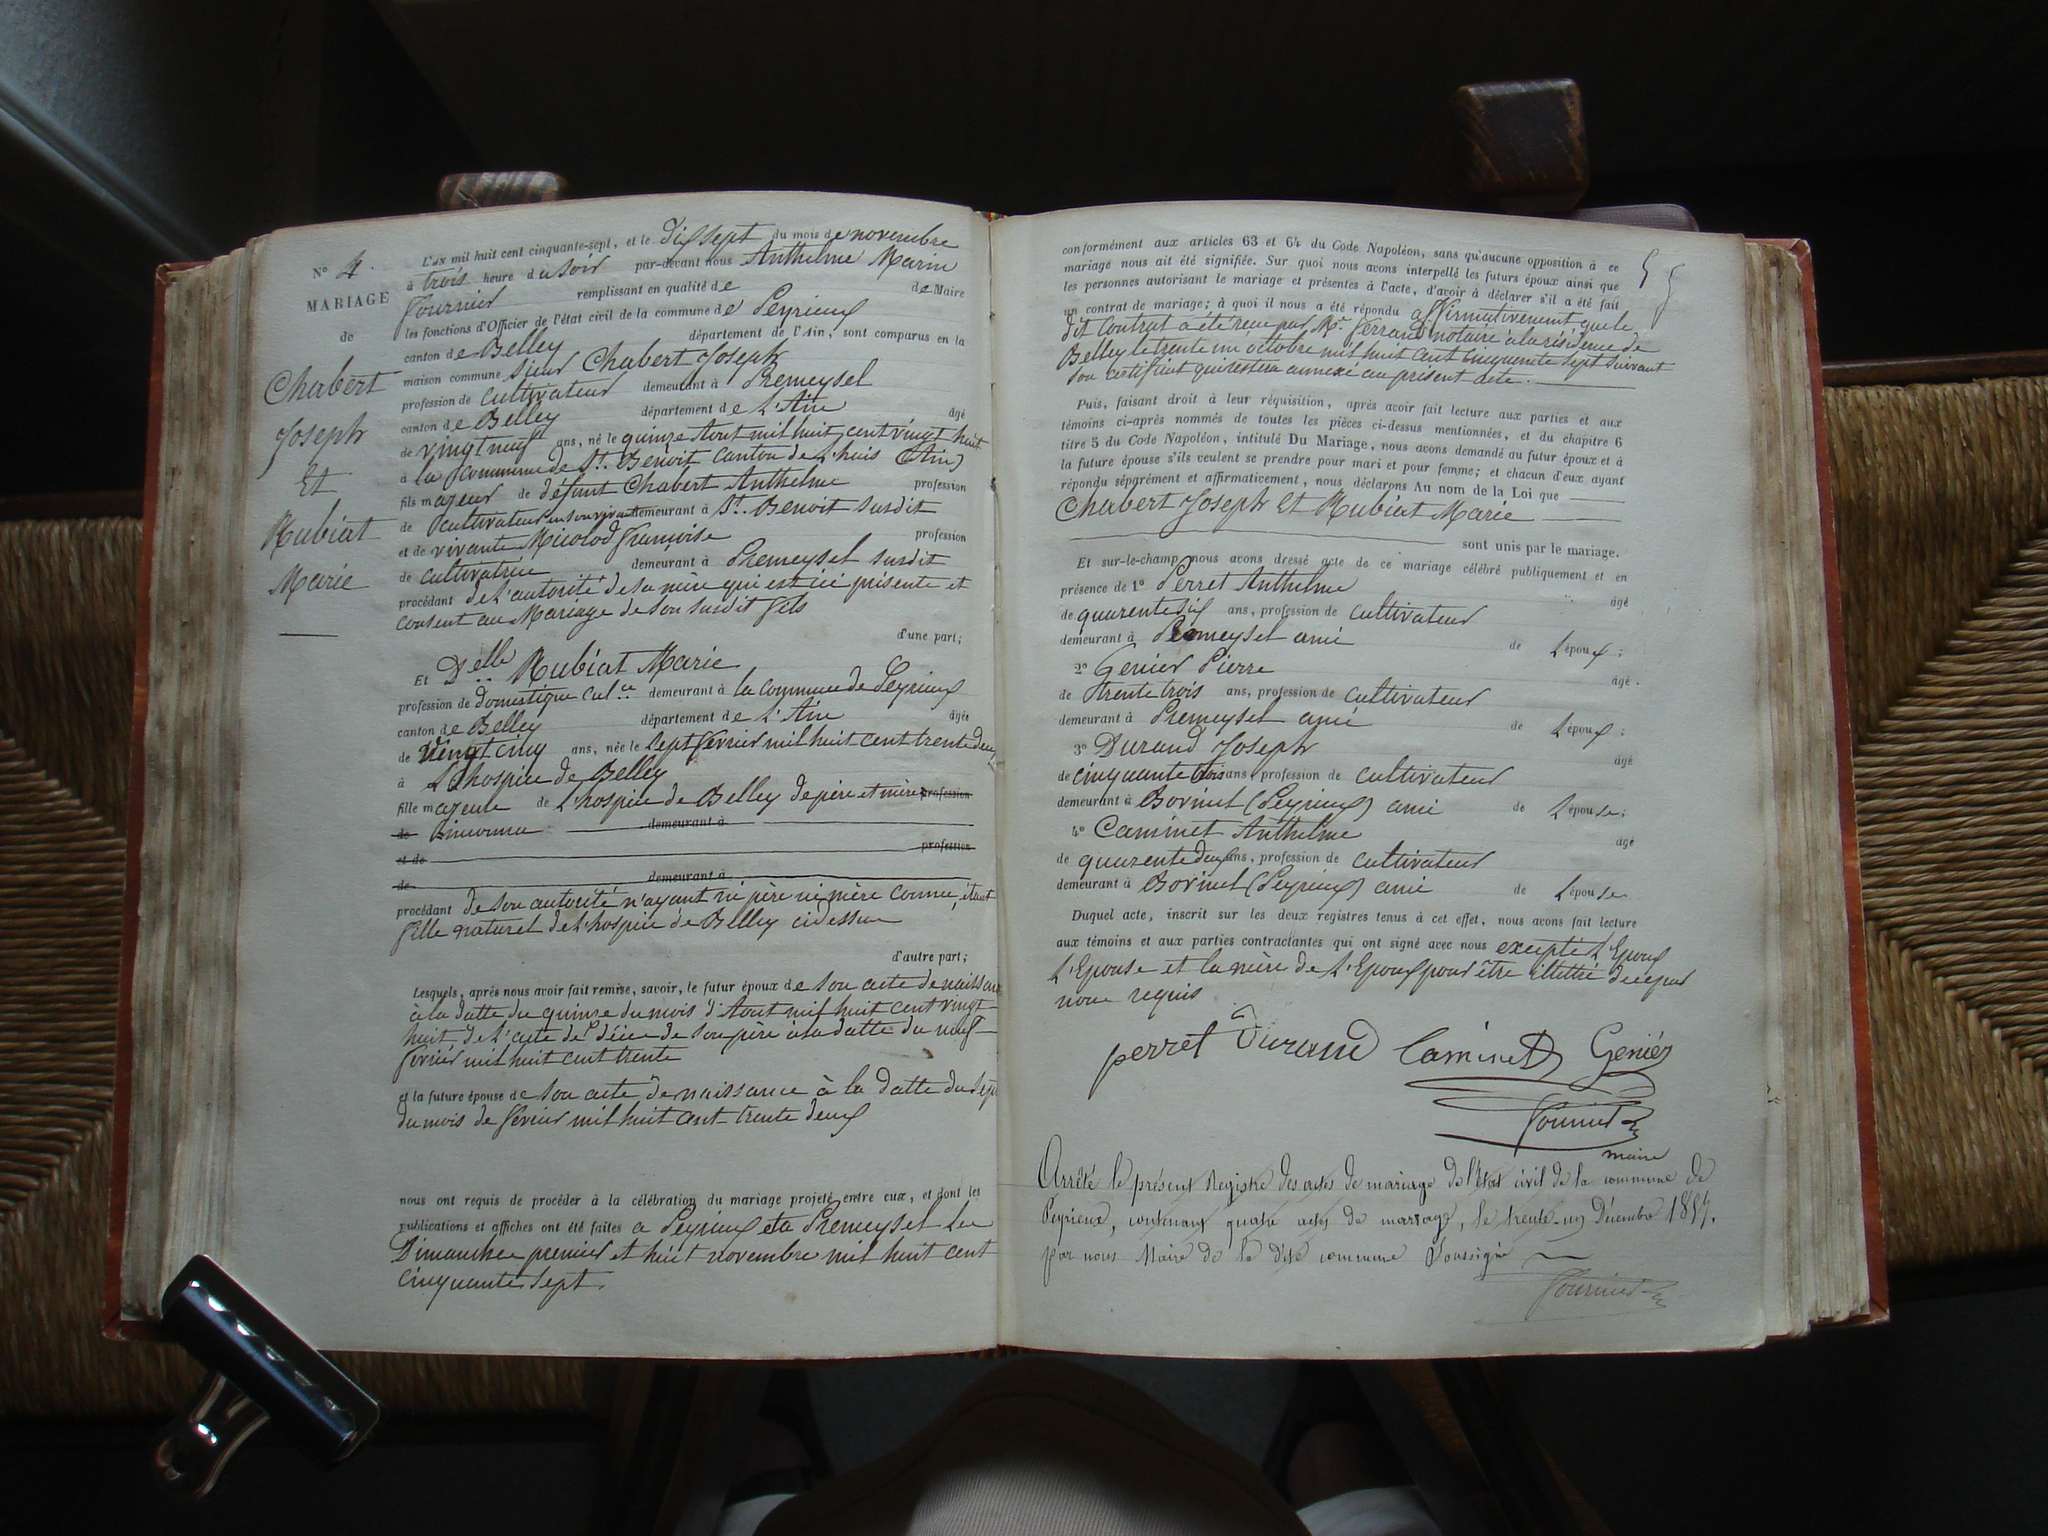 N° 4.
MARIAGE
de
Chabert
Joseph
Et
Rubiat
Marie
L'an mil huit cent cinquante-sept, et le dix sept du mois de novembre
à trois heure du soir par-devant nous Anthelme Marin
Fournier remplissant en qualité de de Maire
les fonctions d'Officier de l'état civil de la commune de Peyrieux
canton de Belley département de l'Ain, sont comparus en la
maison commune sieur Chabert Joseph
profession de cultivateur demeurant à Premeysel
canton de Belley département de L'Ain âgé
de vingt neuf ans, né le quinze Aout mil huit cent vingt huit
à la Commune de St. Benoit canton de L'huis (Ain)
fils majeur de défunt Chabert Anthelme profession
de cultivateur en son vivant demeurant à St. Benoit susdit
et de vivante Micolod Françoise profession
de cultivatrice demeurant à Premeysel susdit
procédant de L'autorité de sa mère qui est ici présente et
consent au Mariage de son susdit fils
d'une part;
Et Delle Rubiat Marie
profession de domestique cul.ce demeurant à la commune de Peyrieux
canton de Belley département de L'Ain âgée
de Vingt cinq ans, née le sept fevrier mil huit cent trente deux
à L'hospice de Belley
fille majeure de L'hospice de Belley de père et mère profession
de inconnu demeurant à
et de profession
de demeurant à
procédant de son autorité n'ayant ni père ni mère connu, étant
fille naturel de L'hospice de Belley ci dessus
d'autre part;
Lesquels, après nous avoir fait remise, savoir, le futur époux de son acte de naissance
à la datte du quinze du mois d'Aout mil huit cent vingt
huit, de L'acte de décée de son père à la datte du neuf
fevrier mil huit cent trente
et la future épouse de son acte de naissance à la datte du sept
du mois de fevrier mil huit cent trente deux
nous ont requis de procéder à la célébration du mariage projeté entre eux, et dont les
publications et affiches ont été faites a Peyrieux et a Premeysel les
Dimanches premier et huit novembre mil huit cent
cinquante sept.
conformément aux articles 63 et 64 du Code Napoléon, sans qu'aucune opposition à ce
mariage nous ait été signifiée. Sur quoi nous avons interpellé les futurs époux ainsi que
les personnes autorisant le mariage et présentes à l'acte, d'avoir à déclarer s'il a été fait
un contrat de mariage; à quoi il nous a été répondu affirmativement que le
dit Contrat a été recu par Mr. Ferrand notaire à la résidence de
Belley le trente un octobre mil huit cent cinquante sept suivant
son certificat qui restera annexé au présent acte.
Puis, faisant droit à leur réquisition, après avoir fait lecture aux parties et aux
témoins ci-après nommés de toutes les pièces ci-dessus mentionnées, et du chapitre 6
titre 5 du Code Napoléon, intitulé Du Mariage, nous avons demandé au futur époux et à
la future épouse s'ils veulent se prendre pour mari et pour femme; et chacun d'eux ayant
répondu séparément et affirmaticement, nous déclarons Au nom de la Loi que
Chabert Joseph Et Rubiat Marie
sont unis par le mariage.
Et sur-le-champ nous avons dressé acte de ce mariage célébré publiquement et en
présence de 1° Perret Anthelme âgé
de quarente dix ans, profession de cultivateur
demeurant à Premeysel ami de L'époux;
2° Genier Pierre âgé
de trente trois ans, profession de cultivateur
demeurant à Premeysel ami de L'époux;
3° Durand Joseph âgé
de cinquante trois ans, profession de cultivateur
demeurant à Borinet (Peyrieux) ami de L'épouse;
4° Caminet Anthelme âgé
de quarente deux ans, profession de cultivateur
demeurant à Borinet (Peyrieux) ami de L'épouse
Duquel acte, inscrit sur les deux registres tenus à cet effet, nous avons fait lecture
aux témoins et aux parties contractantes qui ont signé avec nous excepté L'Epoux
L'Epouse et la mère de L'Epoux pour être illettré de ce par
nous requis
perret Durand Caminet Geniér
Fournier
maire
Arrêté le présent Registre des actes de mariage de l'état civil de la commune de
Peyrieux, contenant quatre actes de mariage, le trente-un Décembre 1857.
par nous Maire de la dite commune Soussigné
Fournier